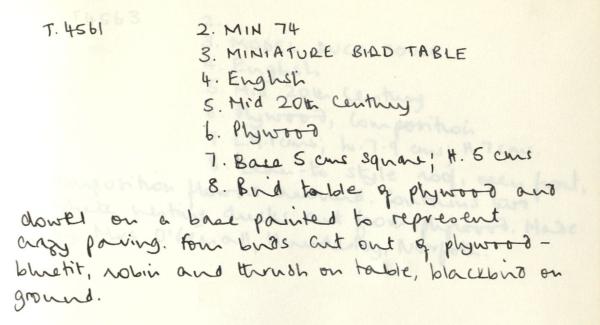 T.4561 2. MIN 74
3. MINIATURE BIRD TABLE
4. English
5. Mid 20th Century
6. Plywood
7. Base 5 cms square; H. 5 cms
8. Bird table of plywood and
dowel on a base painted to represent
crazy paving. Four birds cut out of plywood -
bluetit, robin and thrush on table, blackbird on
ground.